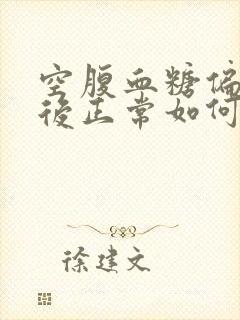 空腹血糖偏
後正常如何
徐建文